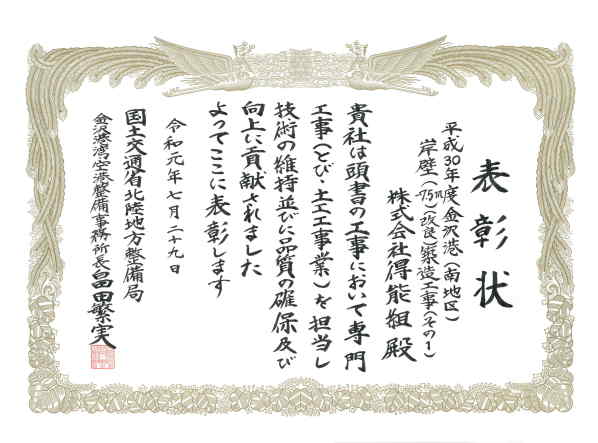 表彰状
平成30年度金沢港(南地区)
岸壁(-7.5m)(改良)築造工事(その1)
株式会社得能組 殿
貴社は頭書の工事において専門
工事(とび・土工工事業)を担当し
技術の維持並びに品質の確保及び
向上に貢献されました
よってここに表彰します
令和元年七月二十九日
国土交通省北陸地方整備局
金沢港湾・空港整備事務所長畠田繁実